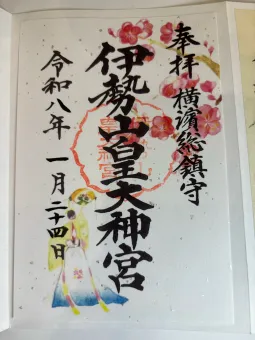 奉拝 横濱総鎮守
伊勢山皇大神宮
令和八年 一月二十四日